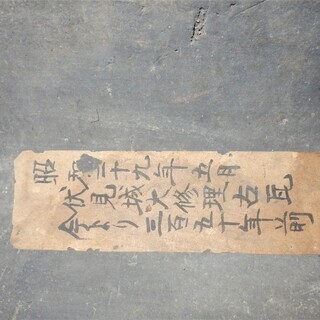 昭和二十九年五月
伏見城大修理古瓦
今より三百五十年前